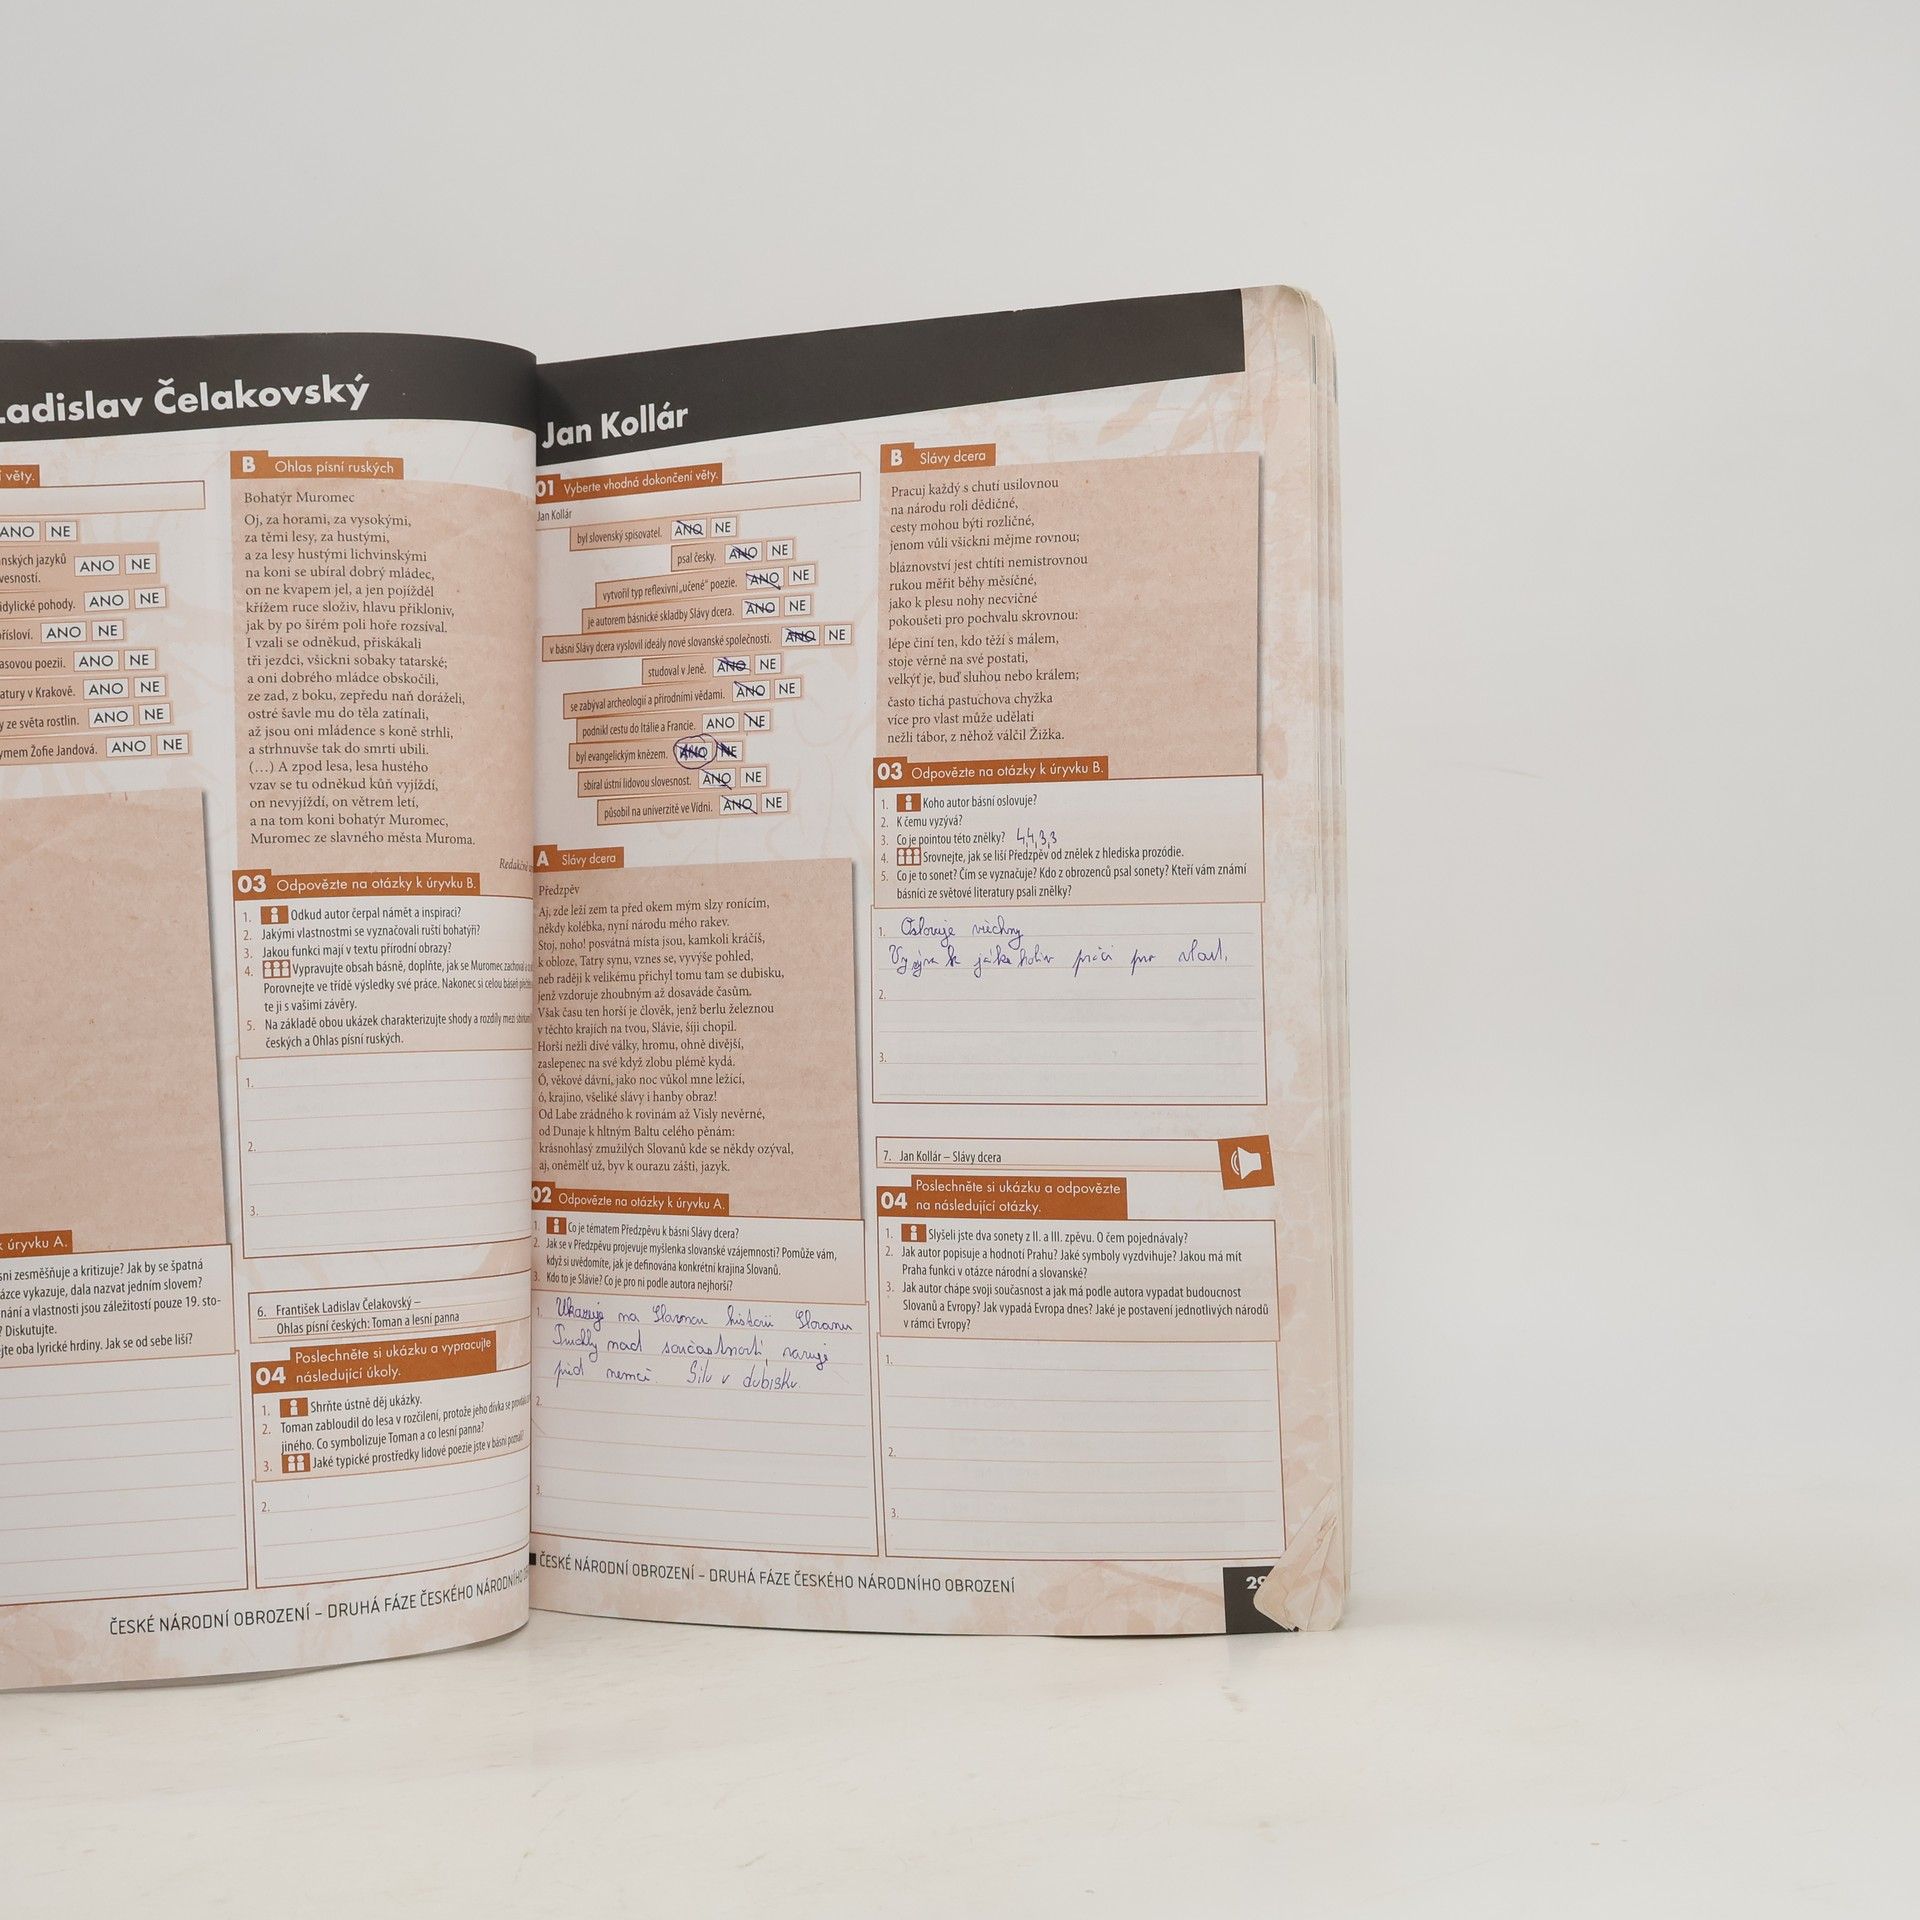 Ladislav Čelakovský
í věty.
ANO NE
nských jazyků
vesností. ANO NE
idylické pohody. ANO NE
řísloví. ANO NE
asovou poezii. ANO NE
atury v Krakově. ANO NE
y ze světa rostlin. ANO NE
ymem Žofie Jandová. ANO NE
k úryvku A.
sni zesměšňuje a kritizuje? Jak by se špatná
ázce vykazuje, dala nazvat jedním slovem?
nání a vlastnosti jsou záležitostí pouze 19. sto-
? Diskutujte.
jte oba lyrické hrdiny. Jak se od sebe liší?
B Ohlas písní ruských
Bohatýr Muromec
Oj, za horami, za vysokými,
za těmi lesy, za hustými,
a za lesy hustými lichvinskými
na koni se ubíral dobrý mládec,
on ne kvapem jel, a jen pojížděl
křížem ruce složiv, hlavu přikloniv,
jak by po širém poli hoře rozsíval.
I vzali se odněkud, přiskákali
tři jezdci, všickni sobaky tatarské;
a oni dobrého mládce obskočili,
ze zad, z boku, zepředu naň doráželi,
ostré šavle mu do těla zatínali,
až jsou oni mládence s koně strhli,
a strhnuvše tak do smrti ubili.
(…) A zpod lesa, lesa hustého
vzav se tu odněkud kůň vyjíždí,
on nevyjíždí, on větrem letí,
a na tom koni bohatýr Muromec,
Muromec ze slavného města Muroma.
03 Odpovězte na otázky k úryvku B.
1. Odkud autor čerpal námět a inspiraci?
2. Jakými vlastnostmi se vyznačovali ruští bohatýři?
3. Jakou funkci mají v textu přírodní obrazy?
4. Vypravujte obsah básně, doplňte, jak se Muromec zachoval
Porovnejte ve třídě výsledky své práce. Nakonec si celou báseň
te ji s vašimi závěry.
5. Na základě obou ukázek charakterizujte shody a rozdíly mezi
českých a Ohlas písní ruských.
1.
2.
3.
6. František Ladislav Čelakovský –
Ohlas písní českých: Toman a lesní panna
04 Poslechněte si ukázku a vypracujte
následující úkoly.
1. Shrňte ústně děj ukázky.
2. Toman zabloudil do lesa v rozčilení, protože jeho dívka se
jiného. Co symbolizuje Toman a co lesní panna?
3. Jaké typické prostředky lidové poezie jste v básni poznali?
2.
ČESKÉ NÁRODNÍ OBROZENÍ – DRUHÁ FÁZE ČESKÉHO NÁRODNÍHO
Jan Kollár
01 Vyberte vhodná dokončení věty.
Jan Kollár
byl slovenský spisovatel. ANO NE
psal česky. ANO NE
vytvořil typ reflexivní „učené“ poezie. ANO NE
je autorem básnické skladby Slávy dcera. ANO NE
v básni Slávy dcera vyslovil ideály nové slovanské společnosti. ANO NE
studoval v Jeně. ANO NE
se zabýval archeologií a přírodními vědami. ANO NE
podnikl cestu do Itálie a Francie. ANO NE
byl evangelickým knězem. ANO NE
sbíral ústní lidovou slovesnost. ANO NE
působil na univerzitě ve Vídni. ANO NE
A Slávy dcera
Předzpěv
Aj, zde leží zem ta před okem mým slzy ronícím,
někdy kolébka, nyní národu mého rakev.
Stoj, noho! posvátná místa jsou, kamkoli kráčíš,
k obloze, Tatry synu, vznes se, vyvýše pohled,
neb raději k velikému přichyl tomu tam se dubisku,
jenž vzdoruje zhoubným až dosaváde časům.
Však času ten horší je člověk, jenž berlu železnou
v těchto krajích na tvou, Slávie, šíji chopil.
Horší nežli divé války, hromu, ohně divější,
zaslepenec na své když zlobu plémě kydá.
Ó, věkové dávní, jako noc vůkol mne ležící,
ó, krajino, všeliké slávy i hanby obraz!
Od Labe zrádného k rovinám až Visly nevěrné,
od Dunaje k hltným Baltu celého pěnám:
krásnohlasý zmužilých Slovanů kde se někdy ozýval,
aj, oněmělť už, byv k ourazu zášti, jazyk.
02 Odpovězte na otázky k úryvku A.
1. Co je tématem Předzpěvu k básni Slávy dcera?
2. Jak se v Předzpěvu projevuje myšlenka slovanské vzájemnosti? Pomůže vám,
když si uvědomíte, jak je definována konkrétní krajina Slovanů.
3. Kdo to je Slávie? Co je pro ni podle autora nejhorší?
1. Ukazuje na Slavnou historii Slovanu
nad současností, varuje
před nemci. Silu v dubisku.
2.
3.
ČESKÉ NÁRODNÍ OBROZENÍ – DRUHÁ FÁZE ČESKÉHO NÁRODNÍHO OBROZENÍ
B Slávy dcera
Pracuj každý s chutí usilovnou
na národu roli dědičné,
cesty mohou býti rozličné,
jenom vůli všickni mějme rovnou;
bláznovství jest chtíti nemistrovnou
rukou měřit běhy měsíčné,
jako k plesu nohy necvičné
pokoušeti pro pochvalu skrovnou:
lépe činí ten, kdo těží s málem,
stoje věrně na své postati,
velkýť je, buď sluhou nebo králem;
často tichá pastuchova chyžka
více pro vlast může udělati
nežli tábor, z něhož válčil Žižka.
03 Odpovězte na otázky k úryvku B.
1. Koho autor básní oslovuje?
2. K čemu vyzývá?
3. Co je pointou této znělky? 4,4,3,3
4. Srovnejte, jak se liší Předzpěv od znělek z hlediska prozódie.
5. Co je to sonet? Čím se vyznačuje? Kdo z obrozenců psal sonety? Kteří vám známí
básníci ze světové literatury psali znělky?
1. Oslovuje všechny
Vyzýva k jakékoliv práci pro vlast.
2.
3.
7. Jan Kollár – Slávy dcera
04 Poslechněte si ukázku a odpovězte
na následující otázky.
1. Slyšeli jste dva sonety z II. a III. zpěvu. O čem pojednávaly?
2. Jak autor popisuje a hodnotí Prahu? Jaké symboly vyzdvihuje? Jakou má mít
Praha funkci v otázce národní a slovanské?
3. Jak autor chápe svoji současnost a jak má podle autora vypadat budoucnost
Slovanů a Evropy? Jak vypadá Evropa dnes? Jaké je postavení jednotlivých národů
v rámci Evropy?
1.
2.
3.